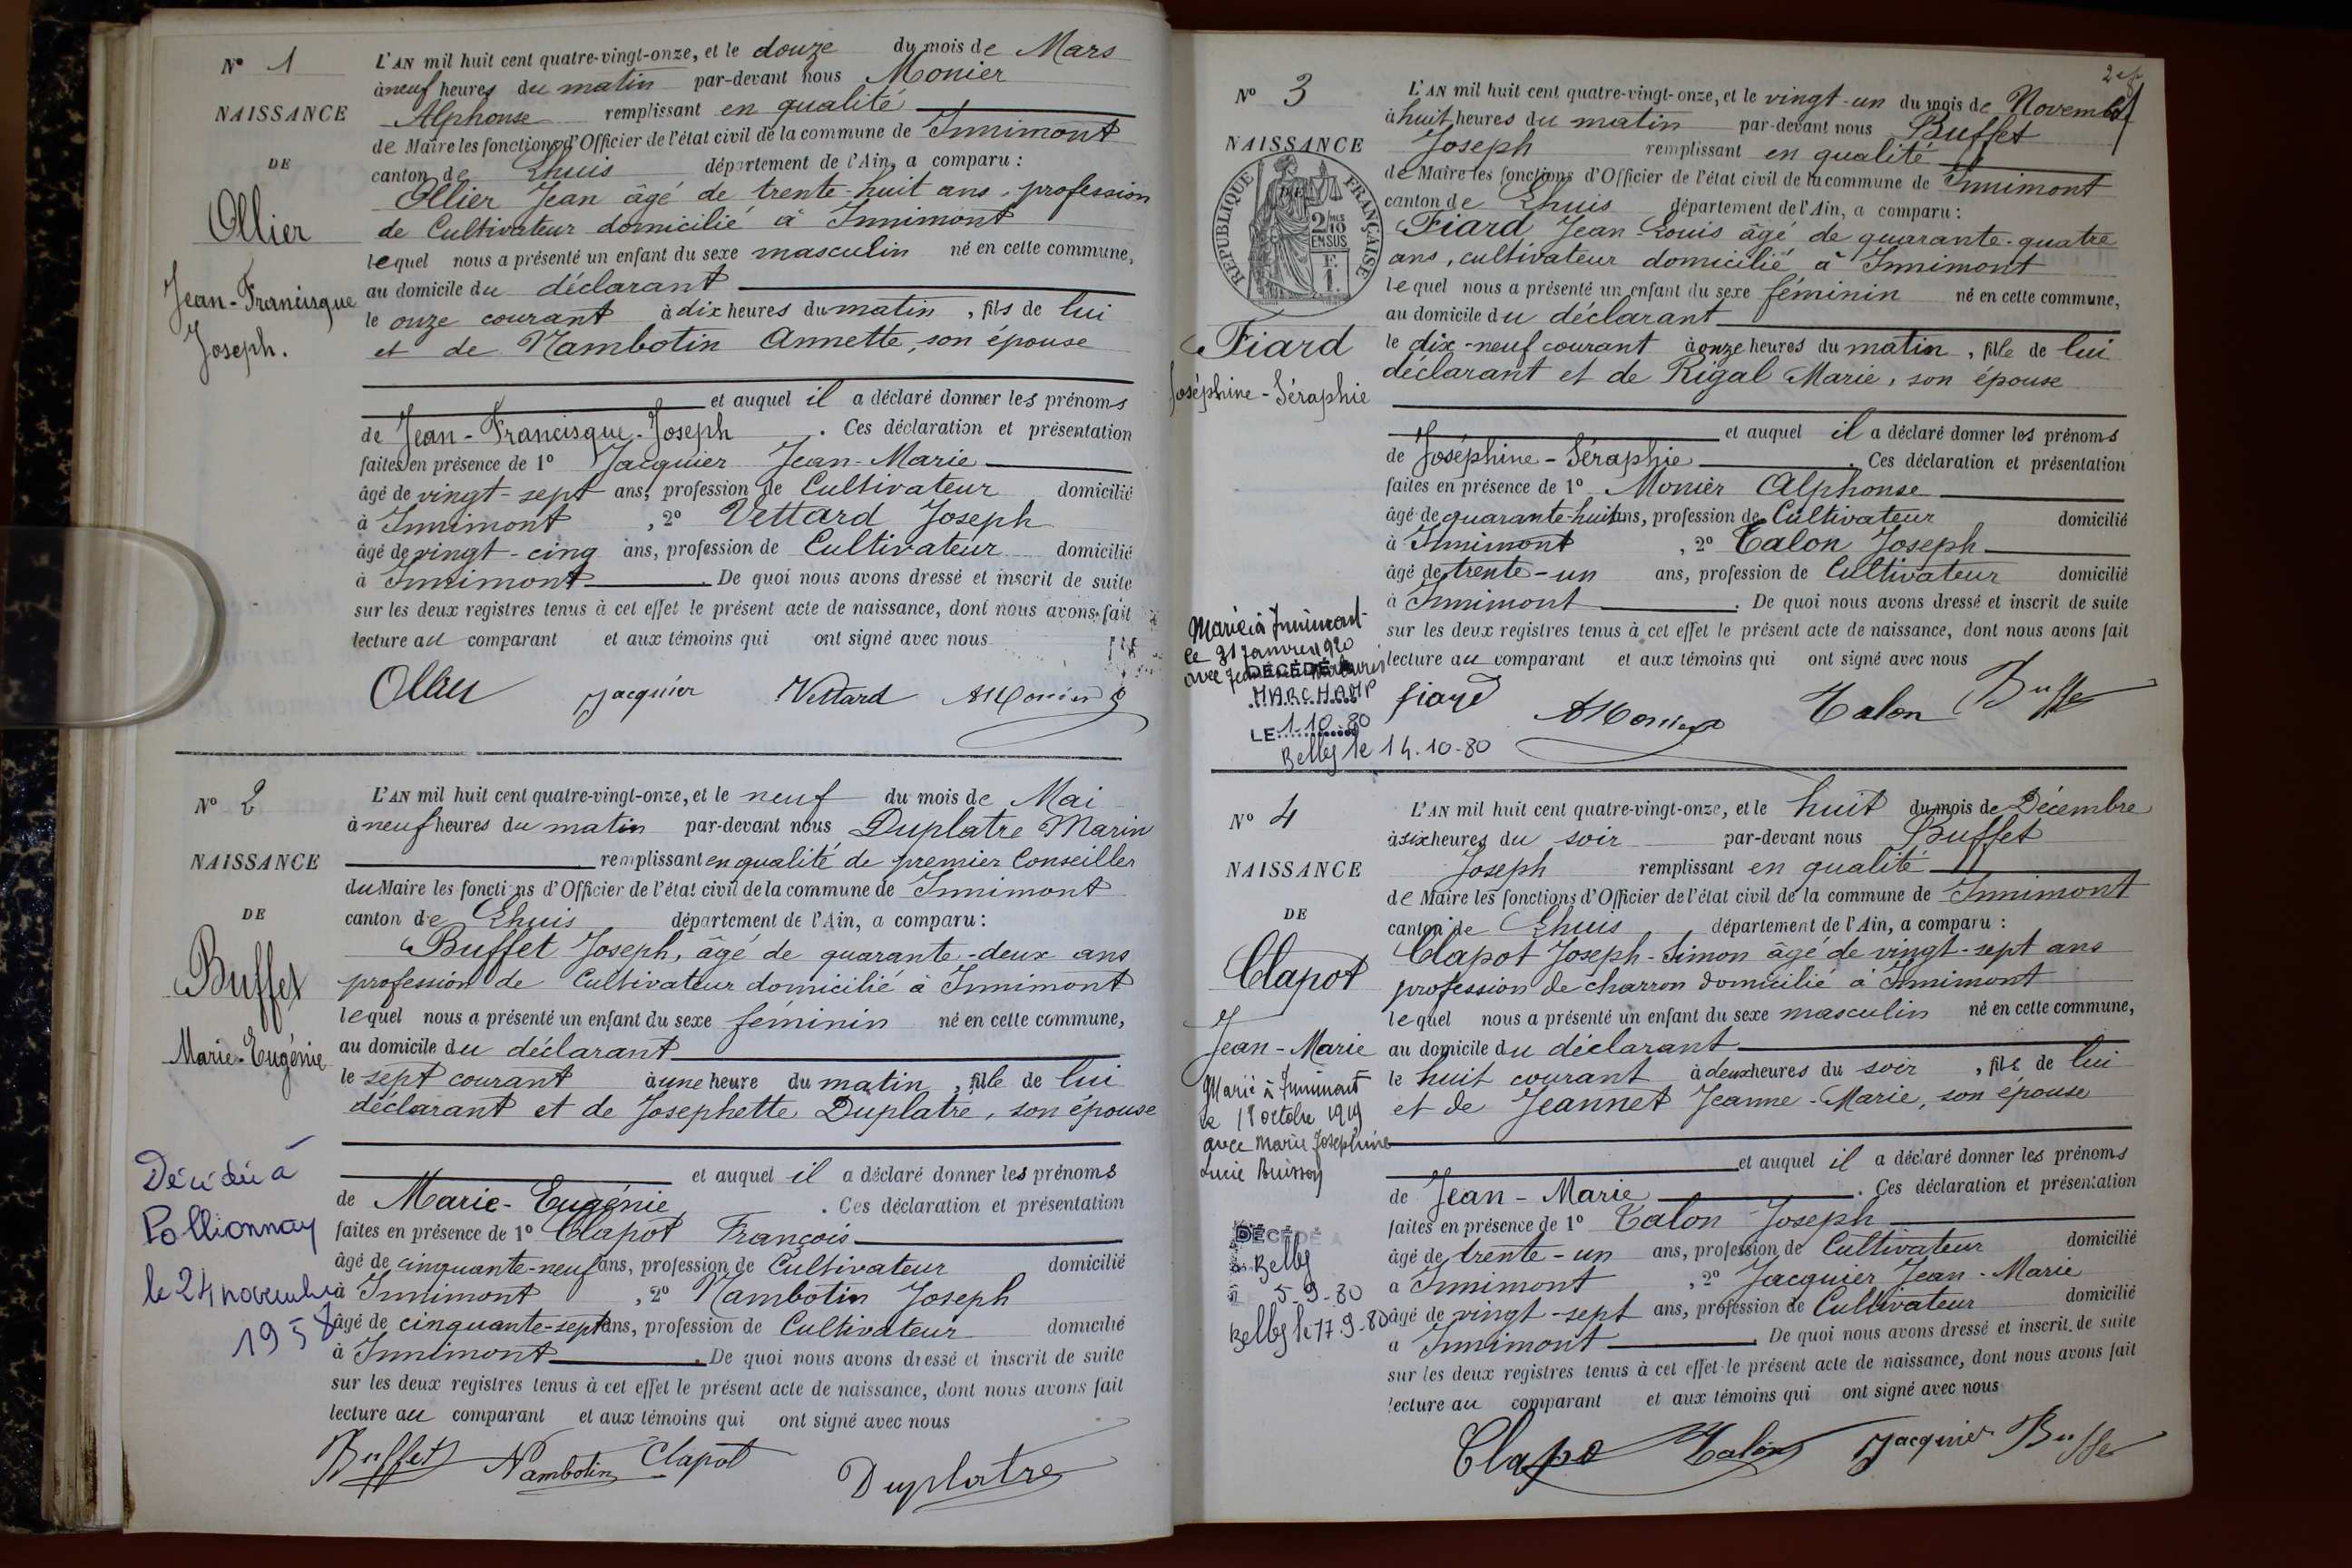 N° 1
NAISSANCE
DE
Ollier
Jean-Francisque
Joseph.
L'AN mil huit cent quatre-vingt-onze, et le douze du mois de Mars
à neuf heures du matin par-devant nous Monier
Alphonse remplissant en qualité
de Maire les fonctions d'Officier de l'état civil de la commune de Innimont
canton de Lhuis département de l'Ain, a comparu :
Ollier Jean âgé de trente-huit ans, profession
de Cultivateur domicilié à Innimont
lequel nous a présenté un enfant du sexe masculin né en cette commune,
au domicile du déclarant
le onze courant à dix heures du matin, fils de lui
et de Nambotin Annette, son épouse
et auquel il a déclaré donner les prénoms
de Jean-Francisque-Joseph. Ces déclaration et présentation
faites en présence de 1° Jacquier Jean-Marie
âgé de vingt-sept ans, profession de Cultivateur domicilié
à Innimont, 2° Vettard Joseph
âgé de vingt-cinq ans, profession de Cultivateur domicilié
à Innimont. De quoi nous avons dressé et inscrit de suite
sur les deux registres tenus à cet effet le présent acte de naissance, dont nous avons fait
lecture au comparant et aux témoins qui ont signé avec nous
Ollier Jacquier Vettard AMonier
N° 2
NAISSANCE
DE
Buffet
Marie-Eugénie
Décédée à
Pollionnay
le 24 novembre
1958
L'AN mil huit cent quatre-vingt-onze, et le neuf du mois de Mai
à neuf heures du matin par-devant nous Duplatre Marin
remplissant en qualité de premier Conseiller
du Maire les fonctions d'Officier de l'état civil de la commune de Innimont
canton de Lhuis département de l'Ain, a comparu :
Buffet Joseph, âgé de quarante-deux ans
profession de Cultivateur domicilié à Innimont
lequel nous a présenté un enfant du sexe féminin né en cette commune,
au domicile du déclarant
le sept courant à une heure du matin, fille de lui
déclarant et de Josephette Duplatre, son épouse
et auquel il a déclaré donner les prénoms
de Marie-Eugénie. Ces déclaration et présentation
faites en présence de 1° Clapot François
âgé de cinquante-neuf ans, profession de Cultivateur domicilié
à Innimont, 2° Nambotin Joseph
âgé de cinquante-sept ans, profession de Cultivateur domicilié
à Innimont. De quoi nous avons dressé et inscrit de suite
sur les deux registres tenus à cet effet le présent acte de naissance, dont nous avons fait
lecture au comparant et aux témoins qui ont signé avec nous
Buffet Nambotin Clapot Duplatre
N° 3
NAISSANCE
RÉPUBLIQUE FRANÇAISE
2/10 EN SUS
F. 1.
Fiard
Joséphine-Séraphie
Mariée à Innimont
le 31 janvier 1920
avec
DÉCÉDÉ A
MARCHAMP
LE 1.10.80
Belley le 14.10.80
L'AN mil huit cent quatre-vingt-onze, et le vingt-un du mois de Novembre
à huit heures du matin par-devant nous Buffet
Joseph remplissant en qualité
de Maire les fonctions d'Officier de l'état civil de la commune de Innimont
canton de Lhuis département de l'Ain, a comparu :
Fiard Jean-Louis âgé de quarante-quatre
ans, cultivateur domicilié à Innimont
lequel nous a présenté un enfant du sexe féminin né en cette commune,
au domicile du déclarant
le dix-neuf courant à onze heures du matin, fille de lui
déclarant et de Rigal Marie, son épouse
et auquel il a déclaré donner les prénoms
de Joséphine-Séraphie. Ces déclaration et présentation
faites en présence de 1° Monier Alphonse
âgé de quarante-huit ans, profession de Cultivateur domicilié
à Innimont, 2° Talon Joseph
âgé de trente-un ans, profession de Cultivateur domicilié
à Innimont. De quoi nous avons dressé et inscrit de suite
sur les deux registres tenus à cet effet le présent acte de naissance, dont nous avons fait
lecture au comparant et aux témoins qui ont signé avec nous
fiard AMonier Talon Buffet
N° 4
NAISSANCE
DE
Clapot
Jean-Marie
Marié à Innimont
le 18 octobre 1919
avec Marie Joséphine
Lucie Buisson
DÉCÉDÉ A
Belley
5-9-80
Belley le 17.9.80
L'AN mil huit cent quatre-vingt-onze, et le huit du mois de Décembre
à six heures du soir par-devant nous Buffet
Joseph remplissant en qualité
de Maire les fonctions d'Officier de l'état civil de la commune de Innimont
canton de Lhuis département de l'Ain, a comparu :
Clapot Joseph-Simon âgé de vingt-sept ans
profession de charron domicilié à Innimont
lequel nous a présenté un enfant du sexe masculin né en cette commune,
au domicile du déclarant
le huit courant à deux heures du soir, fils de lui
et de Jeannet Jeanne-Marie, son épouse
et auquel il a déclaré donner les prénoms
de Jean-Marie. Ces déclaration et présentation
faites en présence de 1° Talon Joseph
âgé de trente-un ans, profession de Cultivateur domicilié
à Innimont, 2° Jacquier Jean-Marie
âgé de vingt-sept ans, profession de Cultivateur domicilié
à Innimont. De quoi nous avons dressé et inscrit de suite
sur les deux registres tenus à cet effet le présent acte de naissance, dont nous avons fait
lecture au comparant et aux témoins qui ont signé avec nous
Clapo Talon Jacquier Buffet